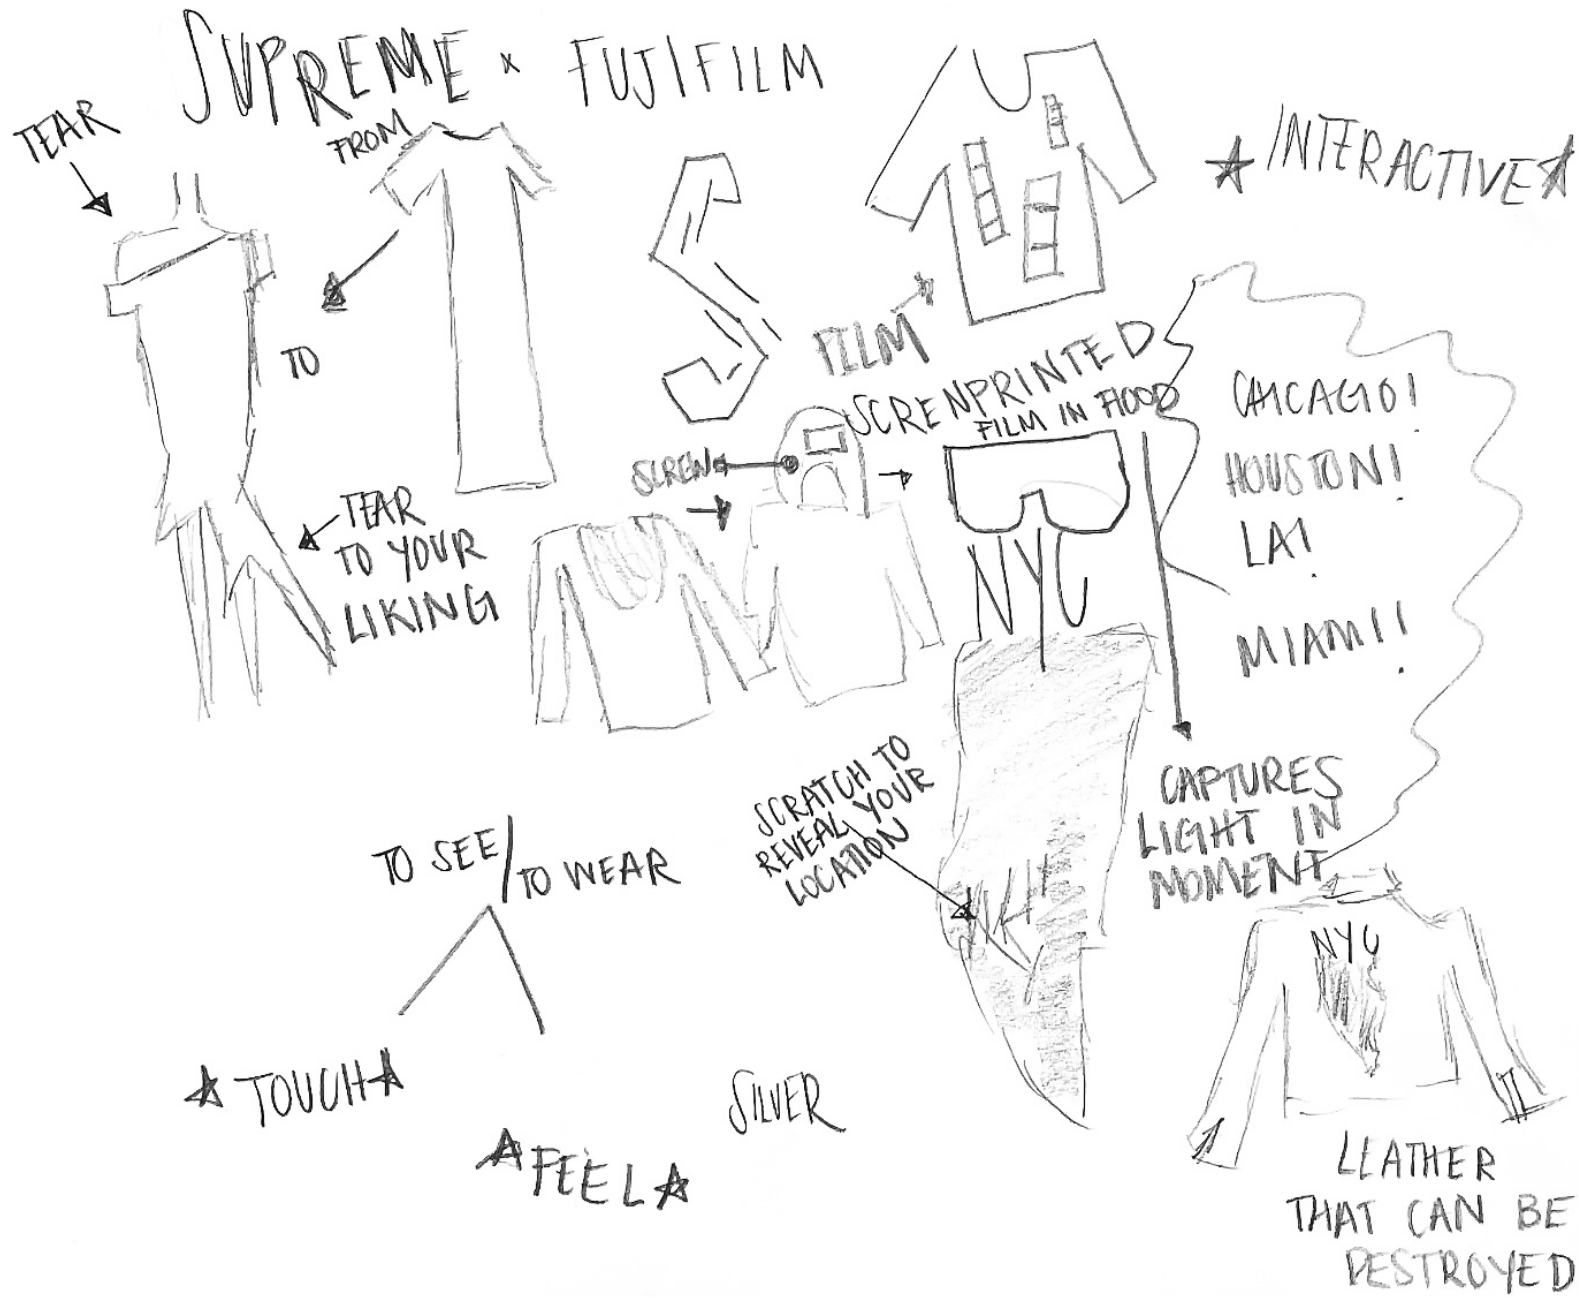 SUPREME x FUJIFILM
TEAR
FROM
TO
TEAR
TO YOUR
LIKING
FILM
★ INTERACTIVE ★
SCRENPRINTED
FILM IN HOOD
SCREW
NYC
CHICAGO!
HOUSTON!
LA!
MIAMI!
CAPTURES
LIGHT IN
MOMENT
SCRATCH TO
REVEAL YOUR
LOCATION
TO SEE/
TO WEAR
★ TOUCH ★
★ FEEL ★
SILVER
NYC
LEATHER
THAT CAN BE
DESTROYED